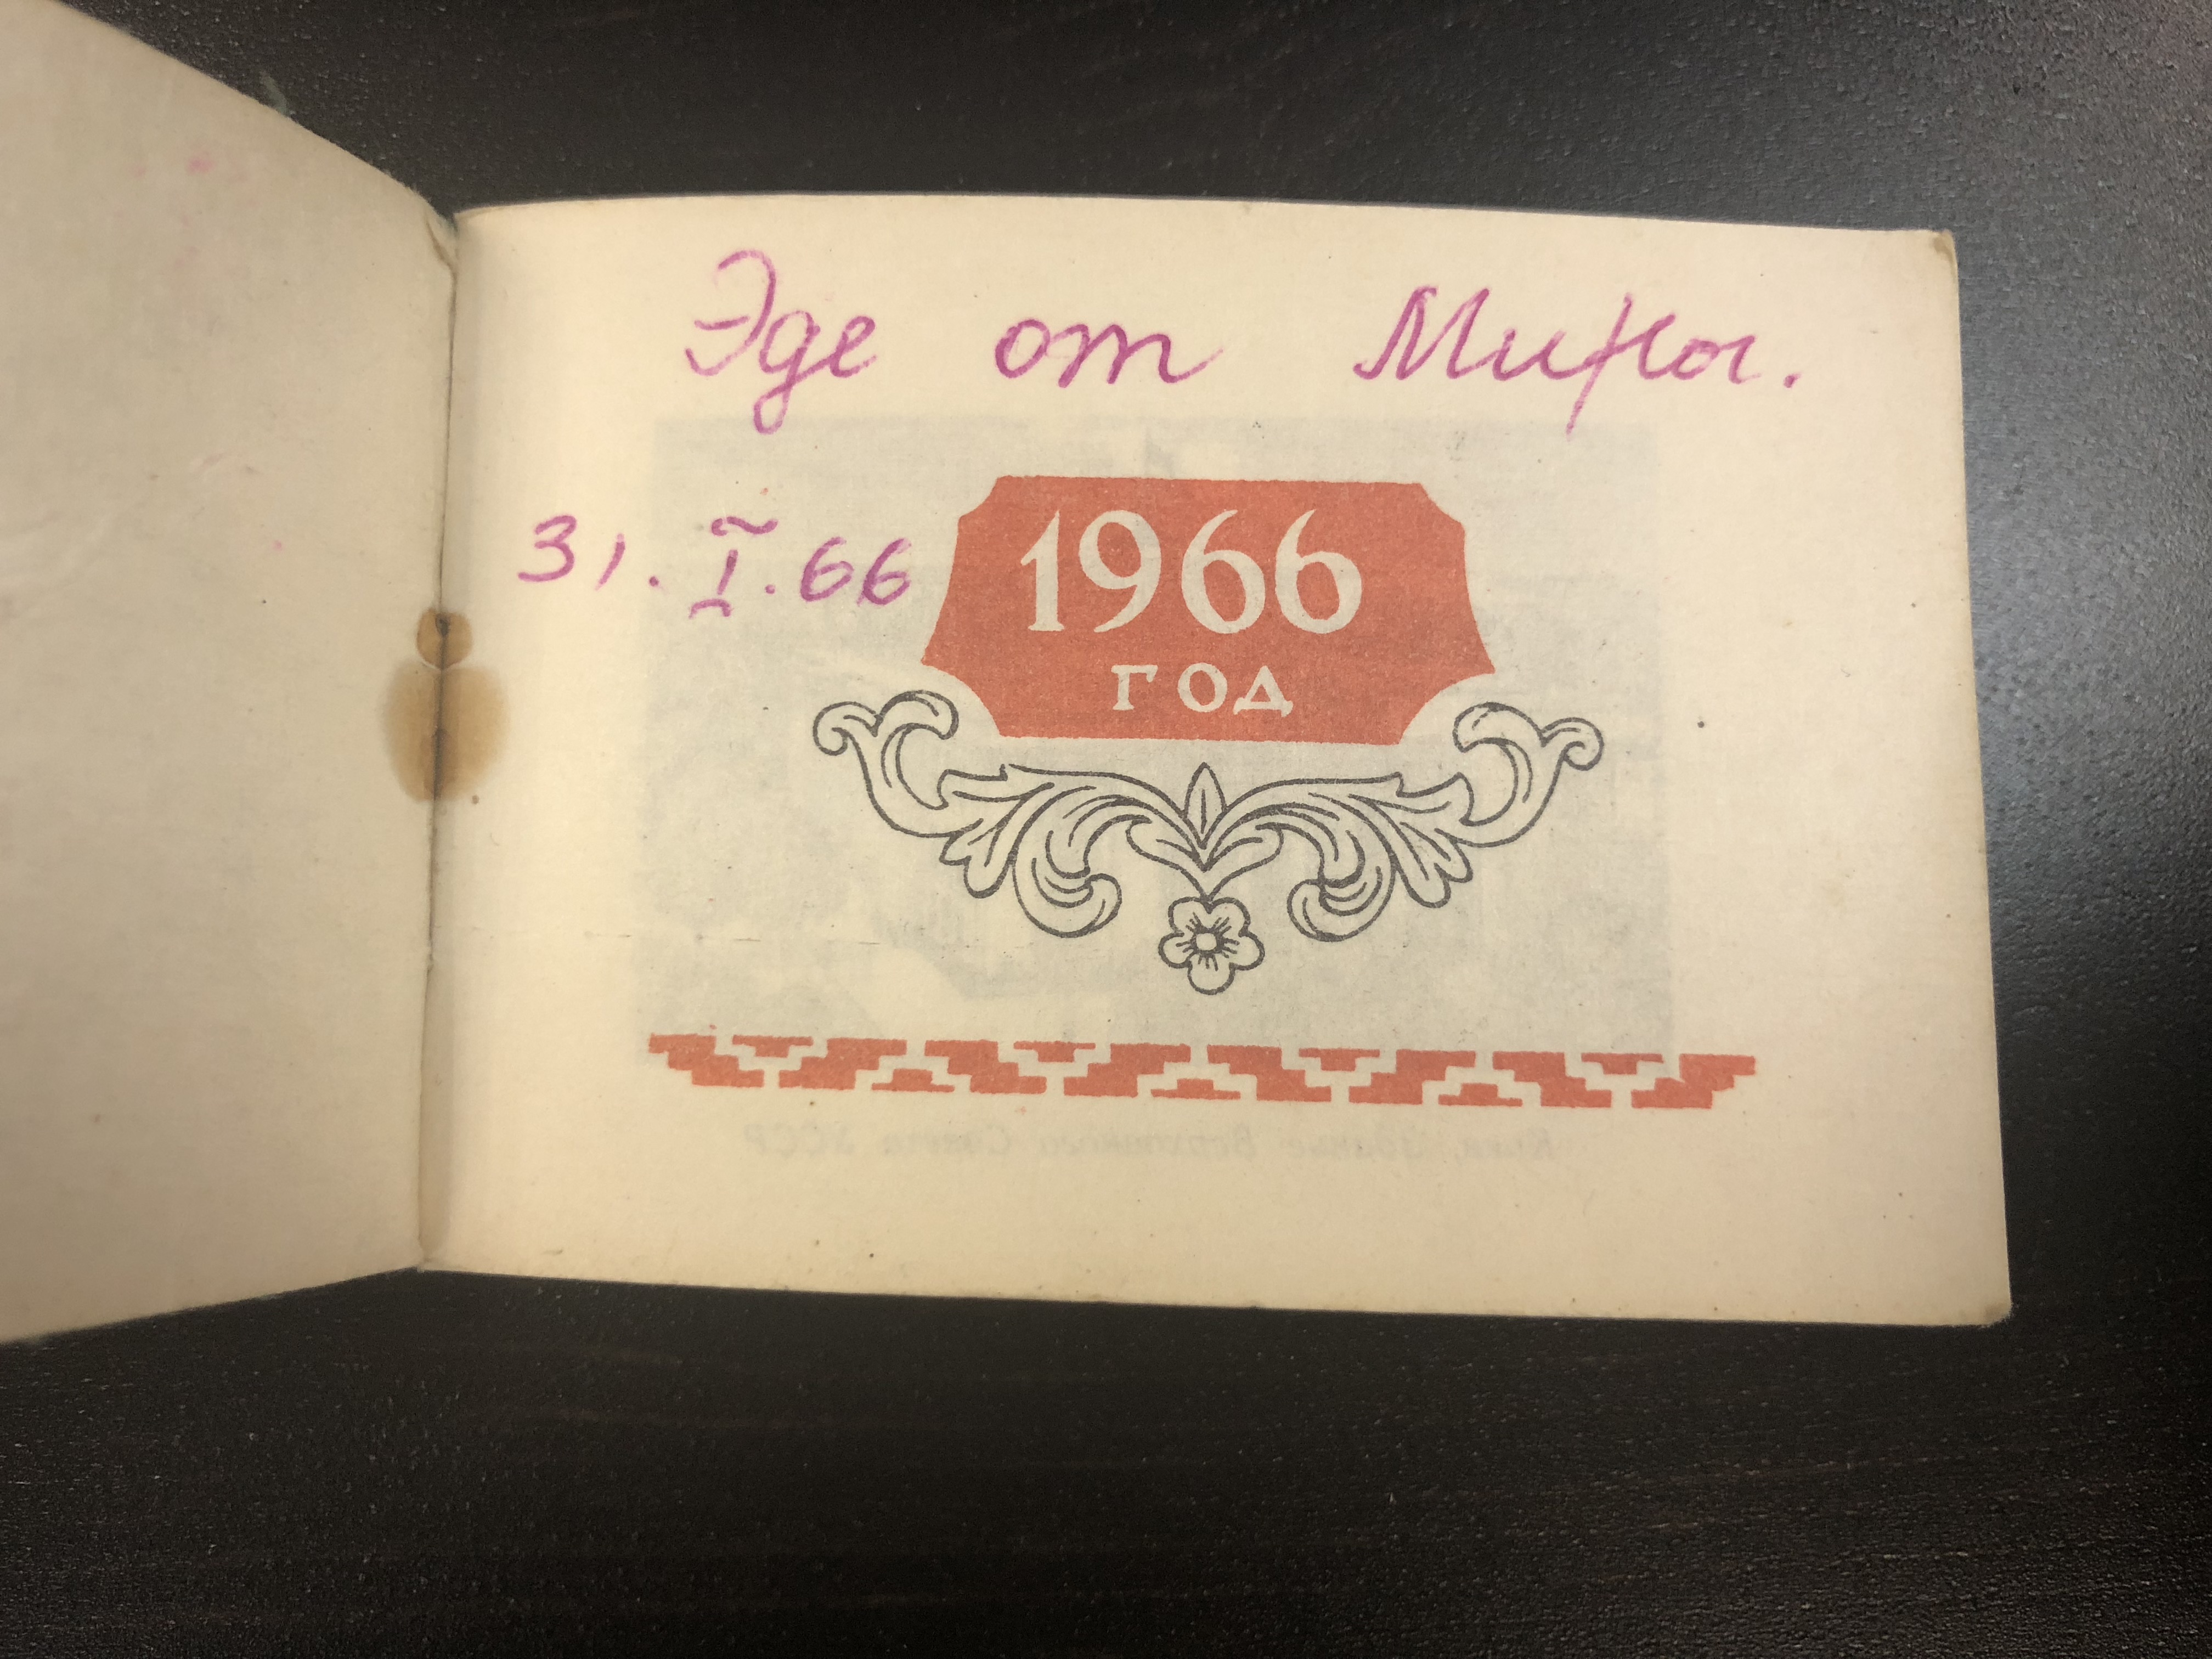 Эде от Миры.
31. I. 66
1966
ГОД